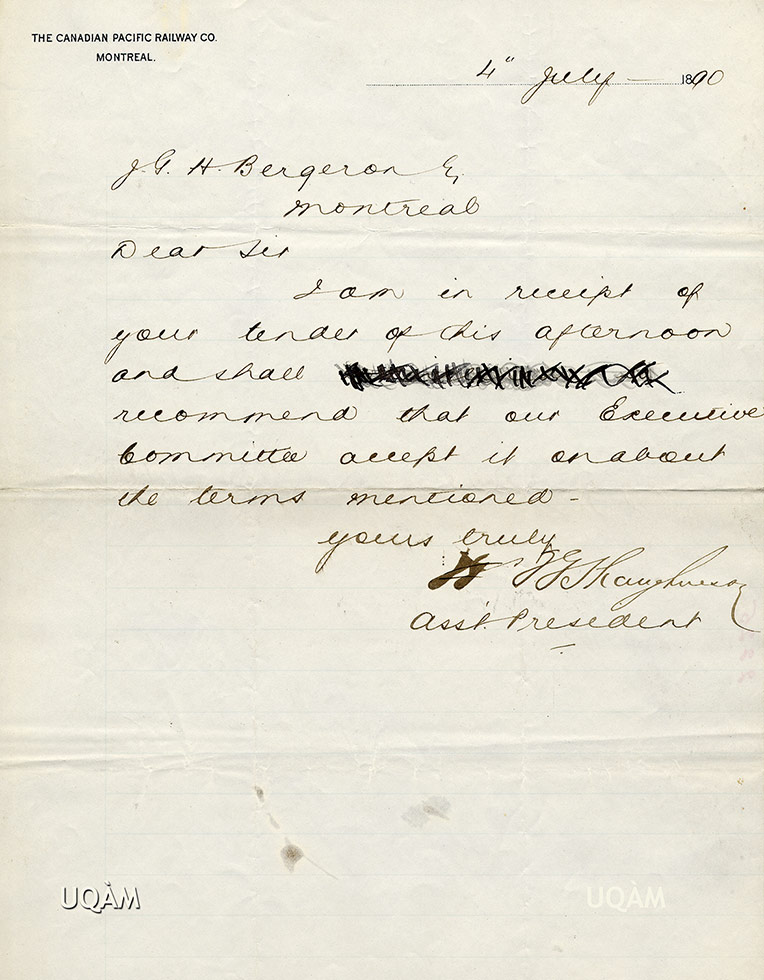 THE CANADIAN PACIFIC RAILWAY CO.
MONTREAL.
4" July — 1890
J. G. H. Bergeron
Montreal
Dear Sir
I am in receipt of
your tender of this afternoon
and shall
recommend that our Executive
Committee accept it on about
the terms mentioned -
yours truly
TG Shaughnessy
Asst. President
UQÀM
UQÀM